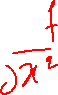 f
∂x²